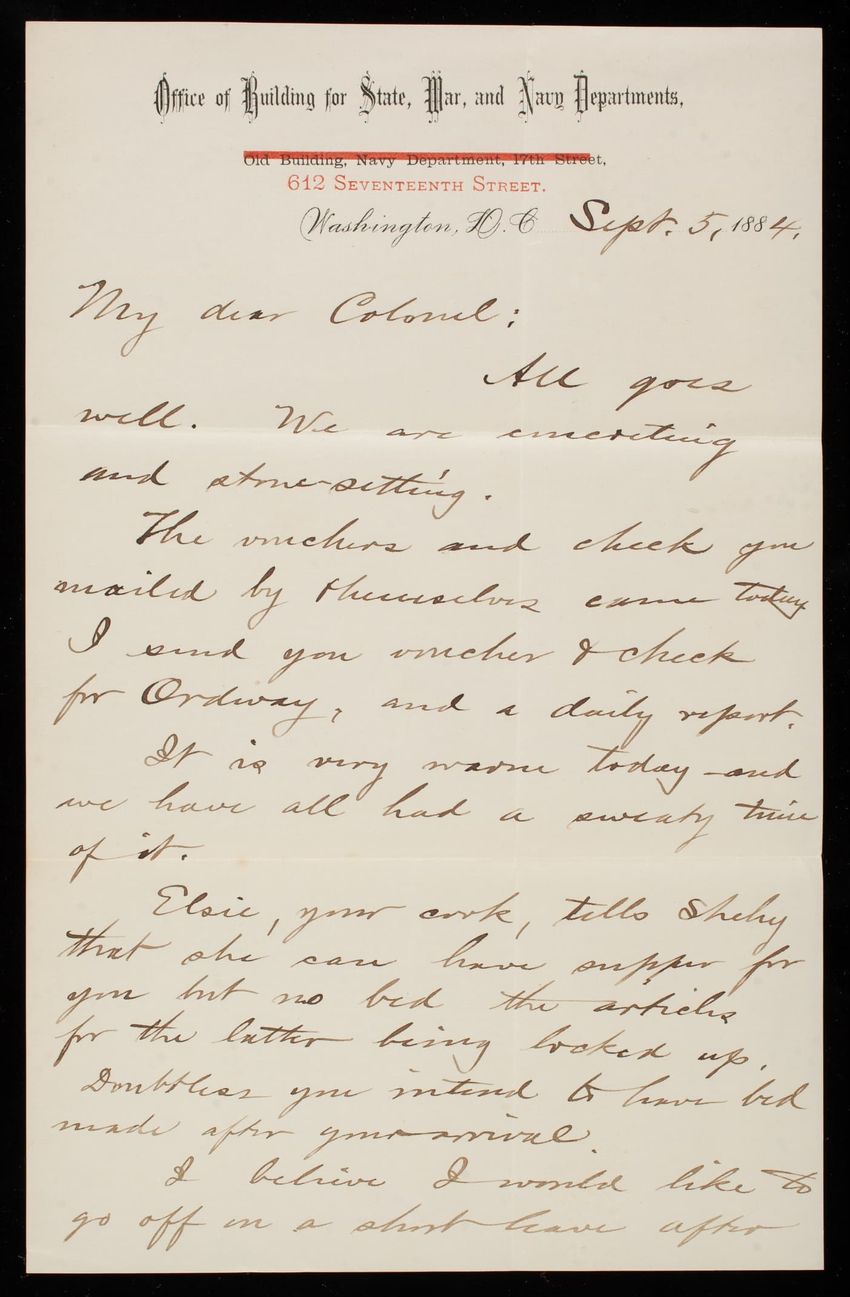 Office of Building for State, War, and Navy Departments,
Old Building, Navy Department, 17th Street,
612 Seventeenth Street.
Washington, D.C. Sept. 5, 1884.
My dear Colonel:
All goes
well. We are concreting
and stone-setting.
The vouchers and check you
mailed by themselves came today
I send you voucher & check
for Ordway, and a daily report.
It is very warm today and
we have all had a sweaty time
of it.
Elsie, your cook, tells Shehy
that she can have supper for
you but no bed the articles
for the latter being locked up.
Doubtless you intend to have bed
made after your arrival.
I believe I would like to
go off on a short leave after